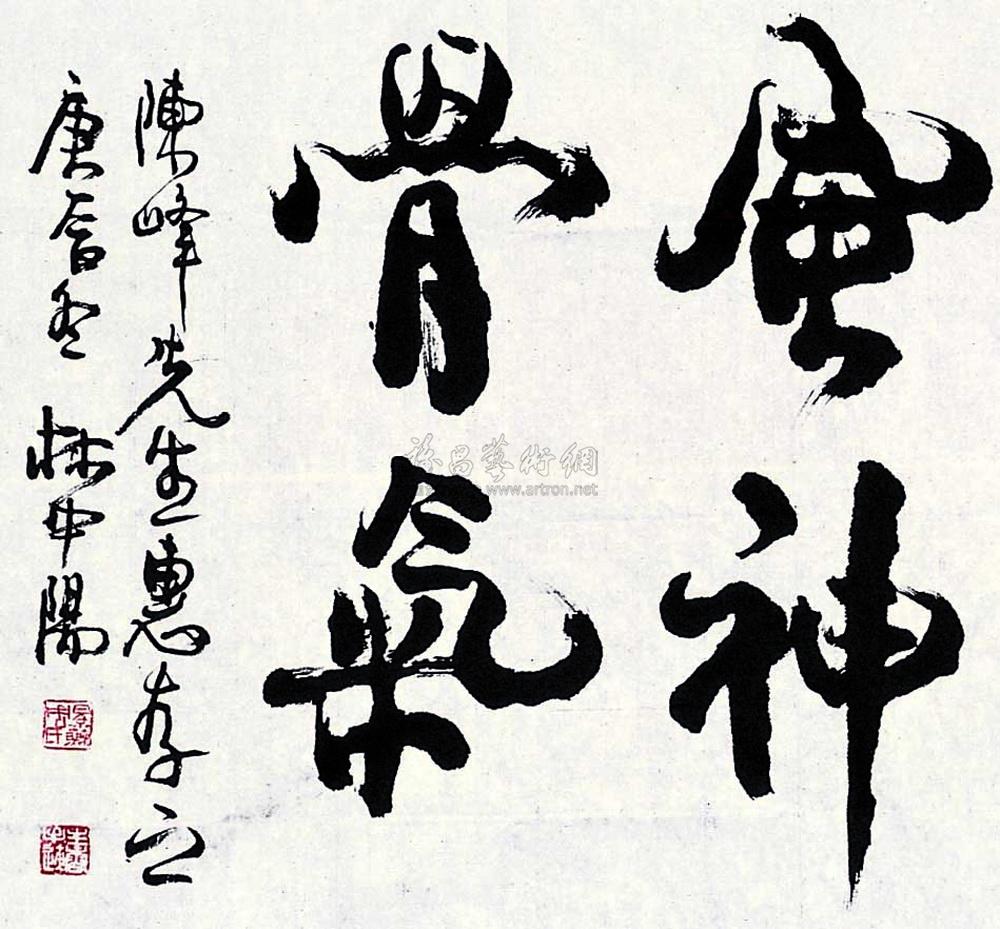 風神
骨氣
陳峰先生惠存之
庚寅冬 林中陽
雅昌藝術網
www.artron.net